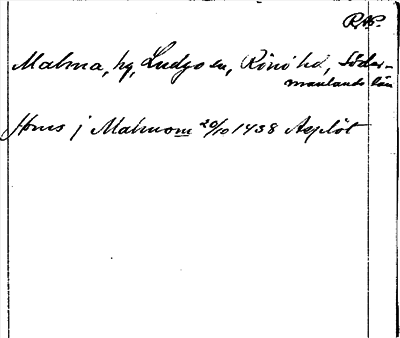 RAP.
Malma, hg, Ludgo sn, Rönö hd, Söder-
manlands län
Jöns j Malmom 20/10 1438 Asplöt